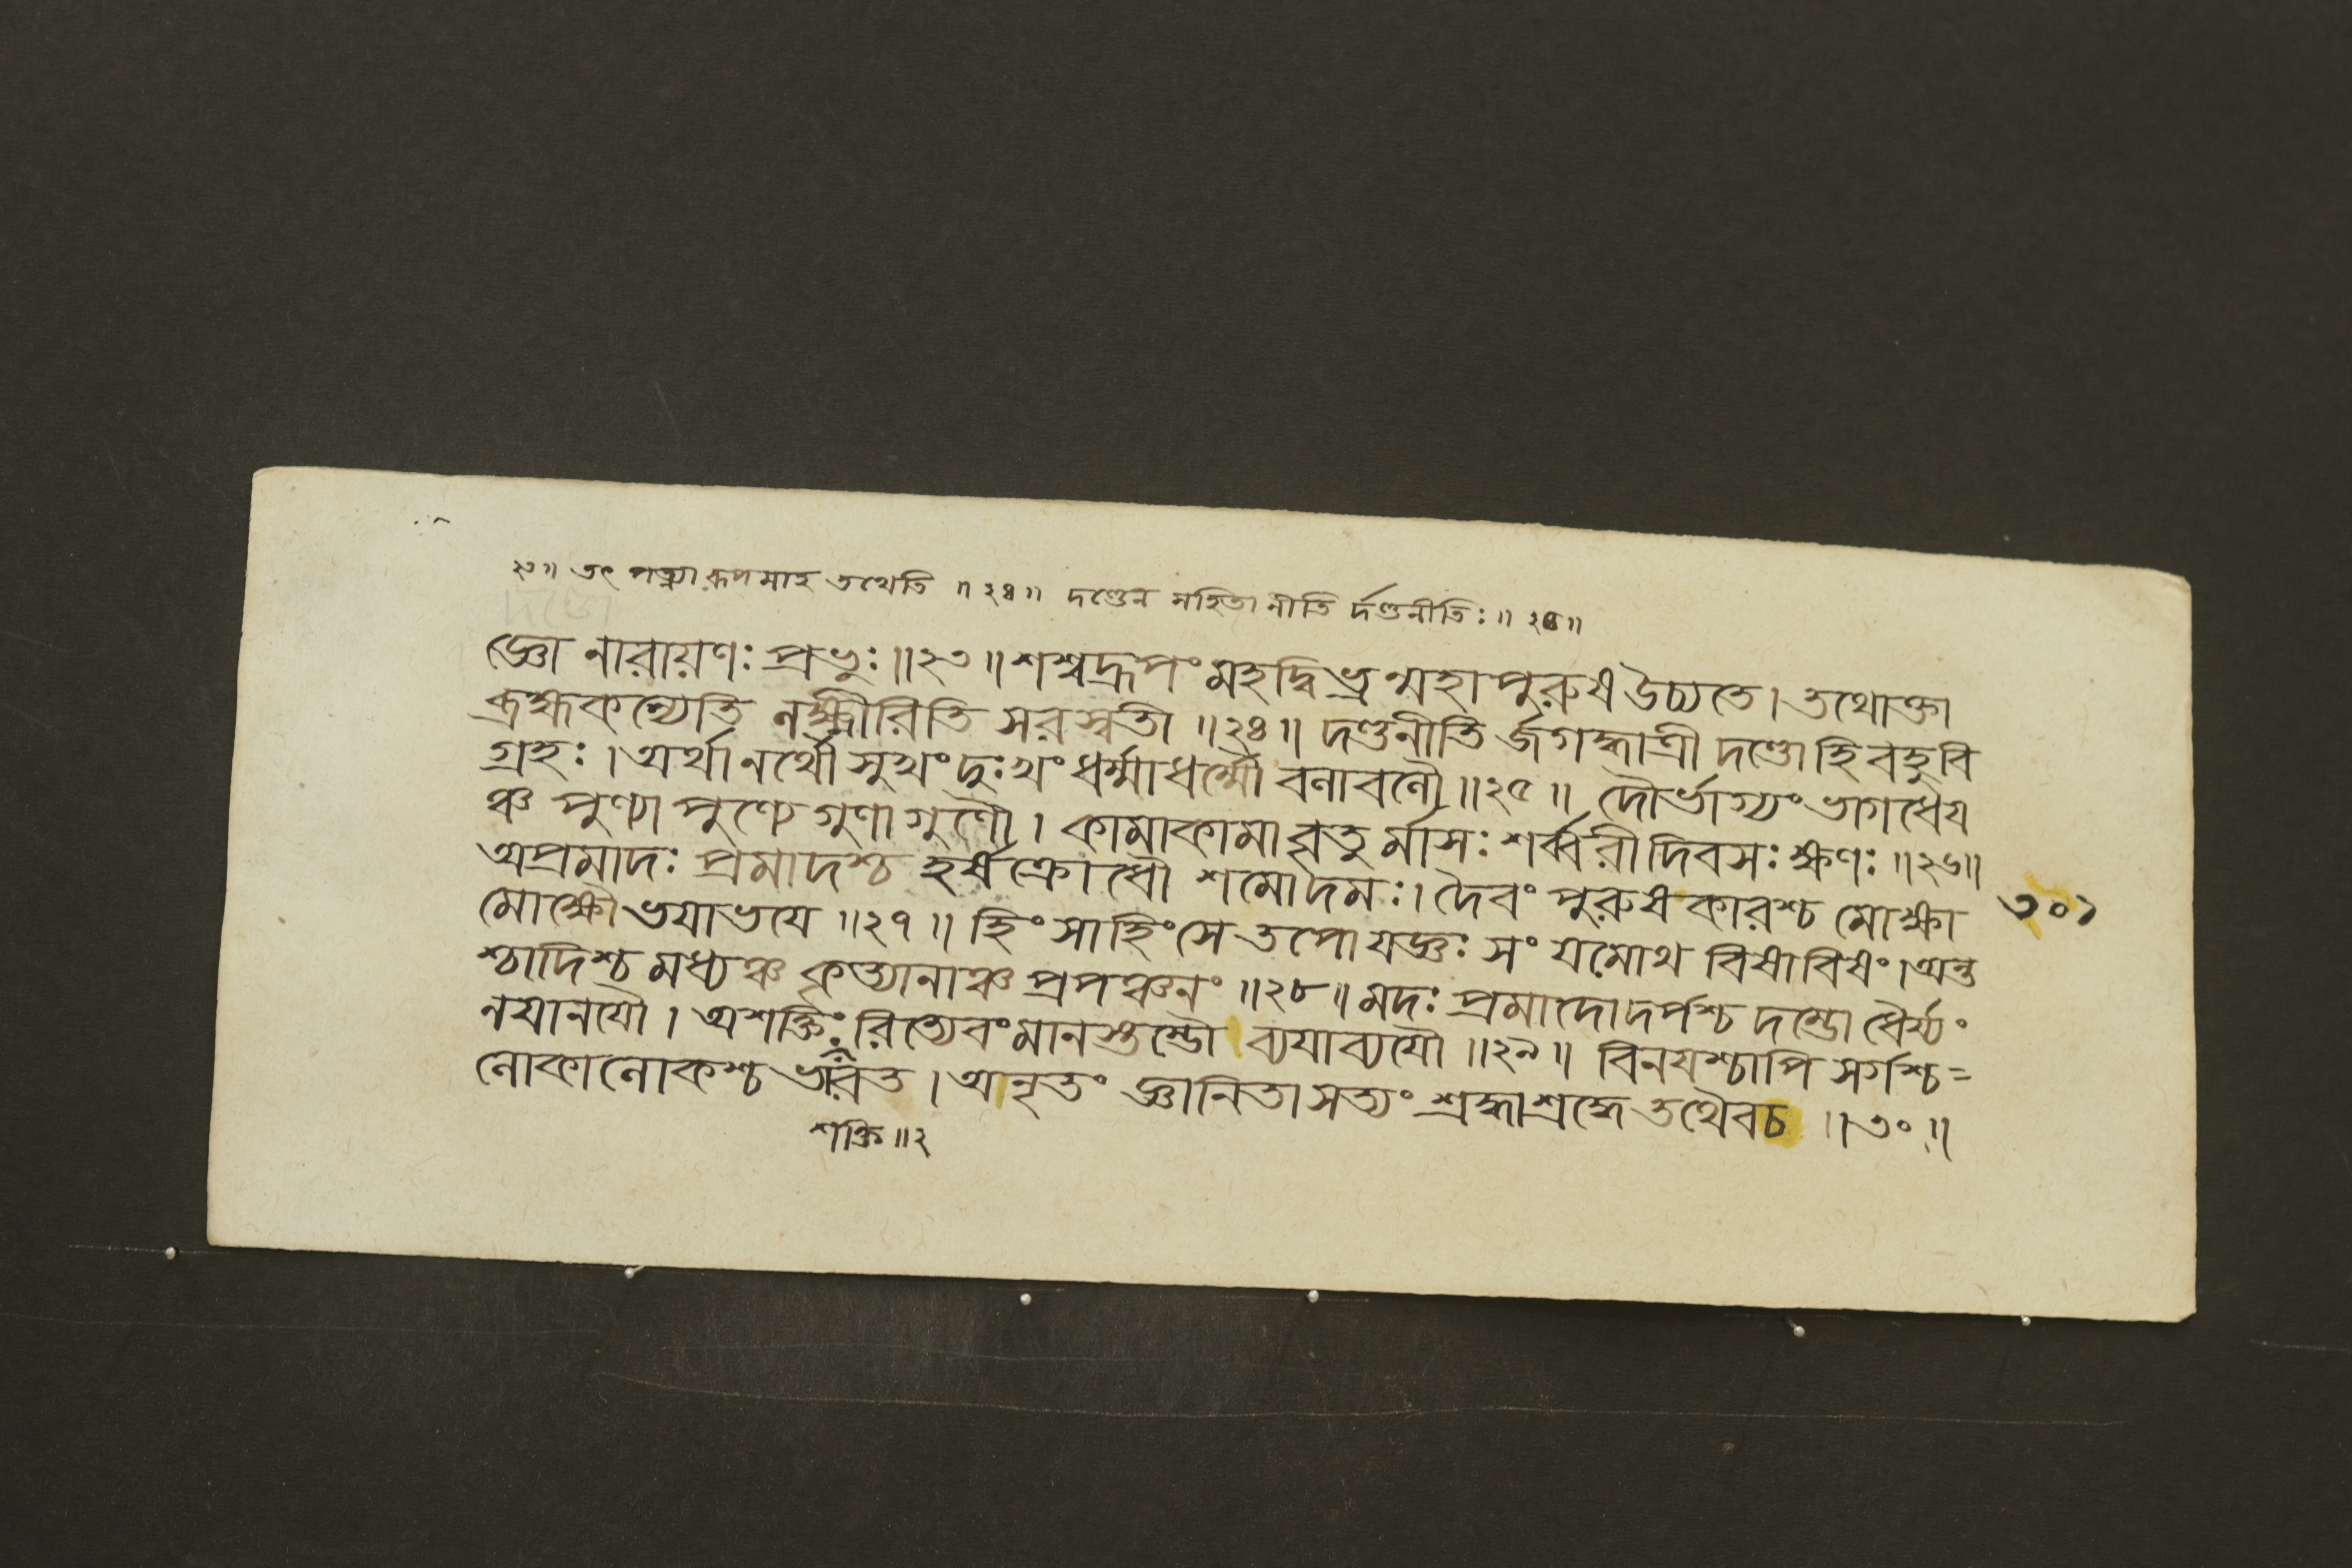 ২৩॥ তৎ পত্ন্যা রূপমাহ তথেতি ॥ ২৪॥ দণ্ডেন সহিতা নীতি র্দণ্ডনীতিঃ॥ ২৫॥
জ্ঞো নারায়ণঃ প্রভুঃ॥২৩॥ শশ্বদ্রূপং মহদ্বিভ্রন্মহাপুরুষ উচ্যতে। তথোক্তা
ব্রহ্মকন্যেতি লক্ষ্মীরিতি সরস্বতী ॥২৪॥ দণ্ডনীতি র্জগদ্ধাত্রী দণ্ডোহি বহুবি
গ্রহঃ। অর্থানর্থৌ সুখংদুঃখং ধর্ম্মাধর্ম্মৌ বলাবলৌ॥২৫॥ দৌর্ভাগ্যং ভাগধেয
ঞ্চ পুণ্যাপুণ্যে গুণাগুণৌ। কামাকামাবৃতু র্মাসঃ শর্ব্বরীদিবসঃ ক্ষণঃ॥২৬॥
অপ্রমাদঃ প্রমাদশ্চ হর্ষক্রোধৌ শমোদমঃ। দৈবং পুরুষকারশ্চ মোক্ষা ৩০১
মোক্ষৌ ভযাভযে ॥২৭॥ হিংসাহিংসে তপোযজ্ঞঃ সংযমোথ বিষাবিষং। অন্ত
শ্চাদিশ্চ মধ্যঞ্চ কৃত্যানাঞ্চ প্রপঞ্চনং ॥২৮॥ মদঃ প্রমাদোদর্পশ্চ দম্ভো ধৈর্য্যং
নযানযৌ। অশক্তিঃরিত্যেবংমানস্তম্ভৌ ব্যযাব্যযৌ ॥২৯॥ বিনযশ্চাপি সর্গশ্চ=
লোকালোকশ্চ ভারত। অনৃতং জ্ঞানিতা সত্যং শ্রদ্ধাশ্রদ্ধে তথৈবচ ॥৩০॥
শক্তি॥২